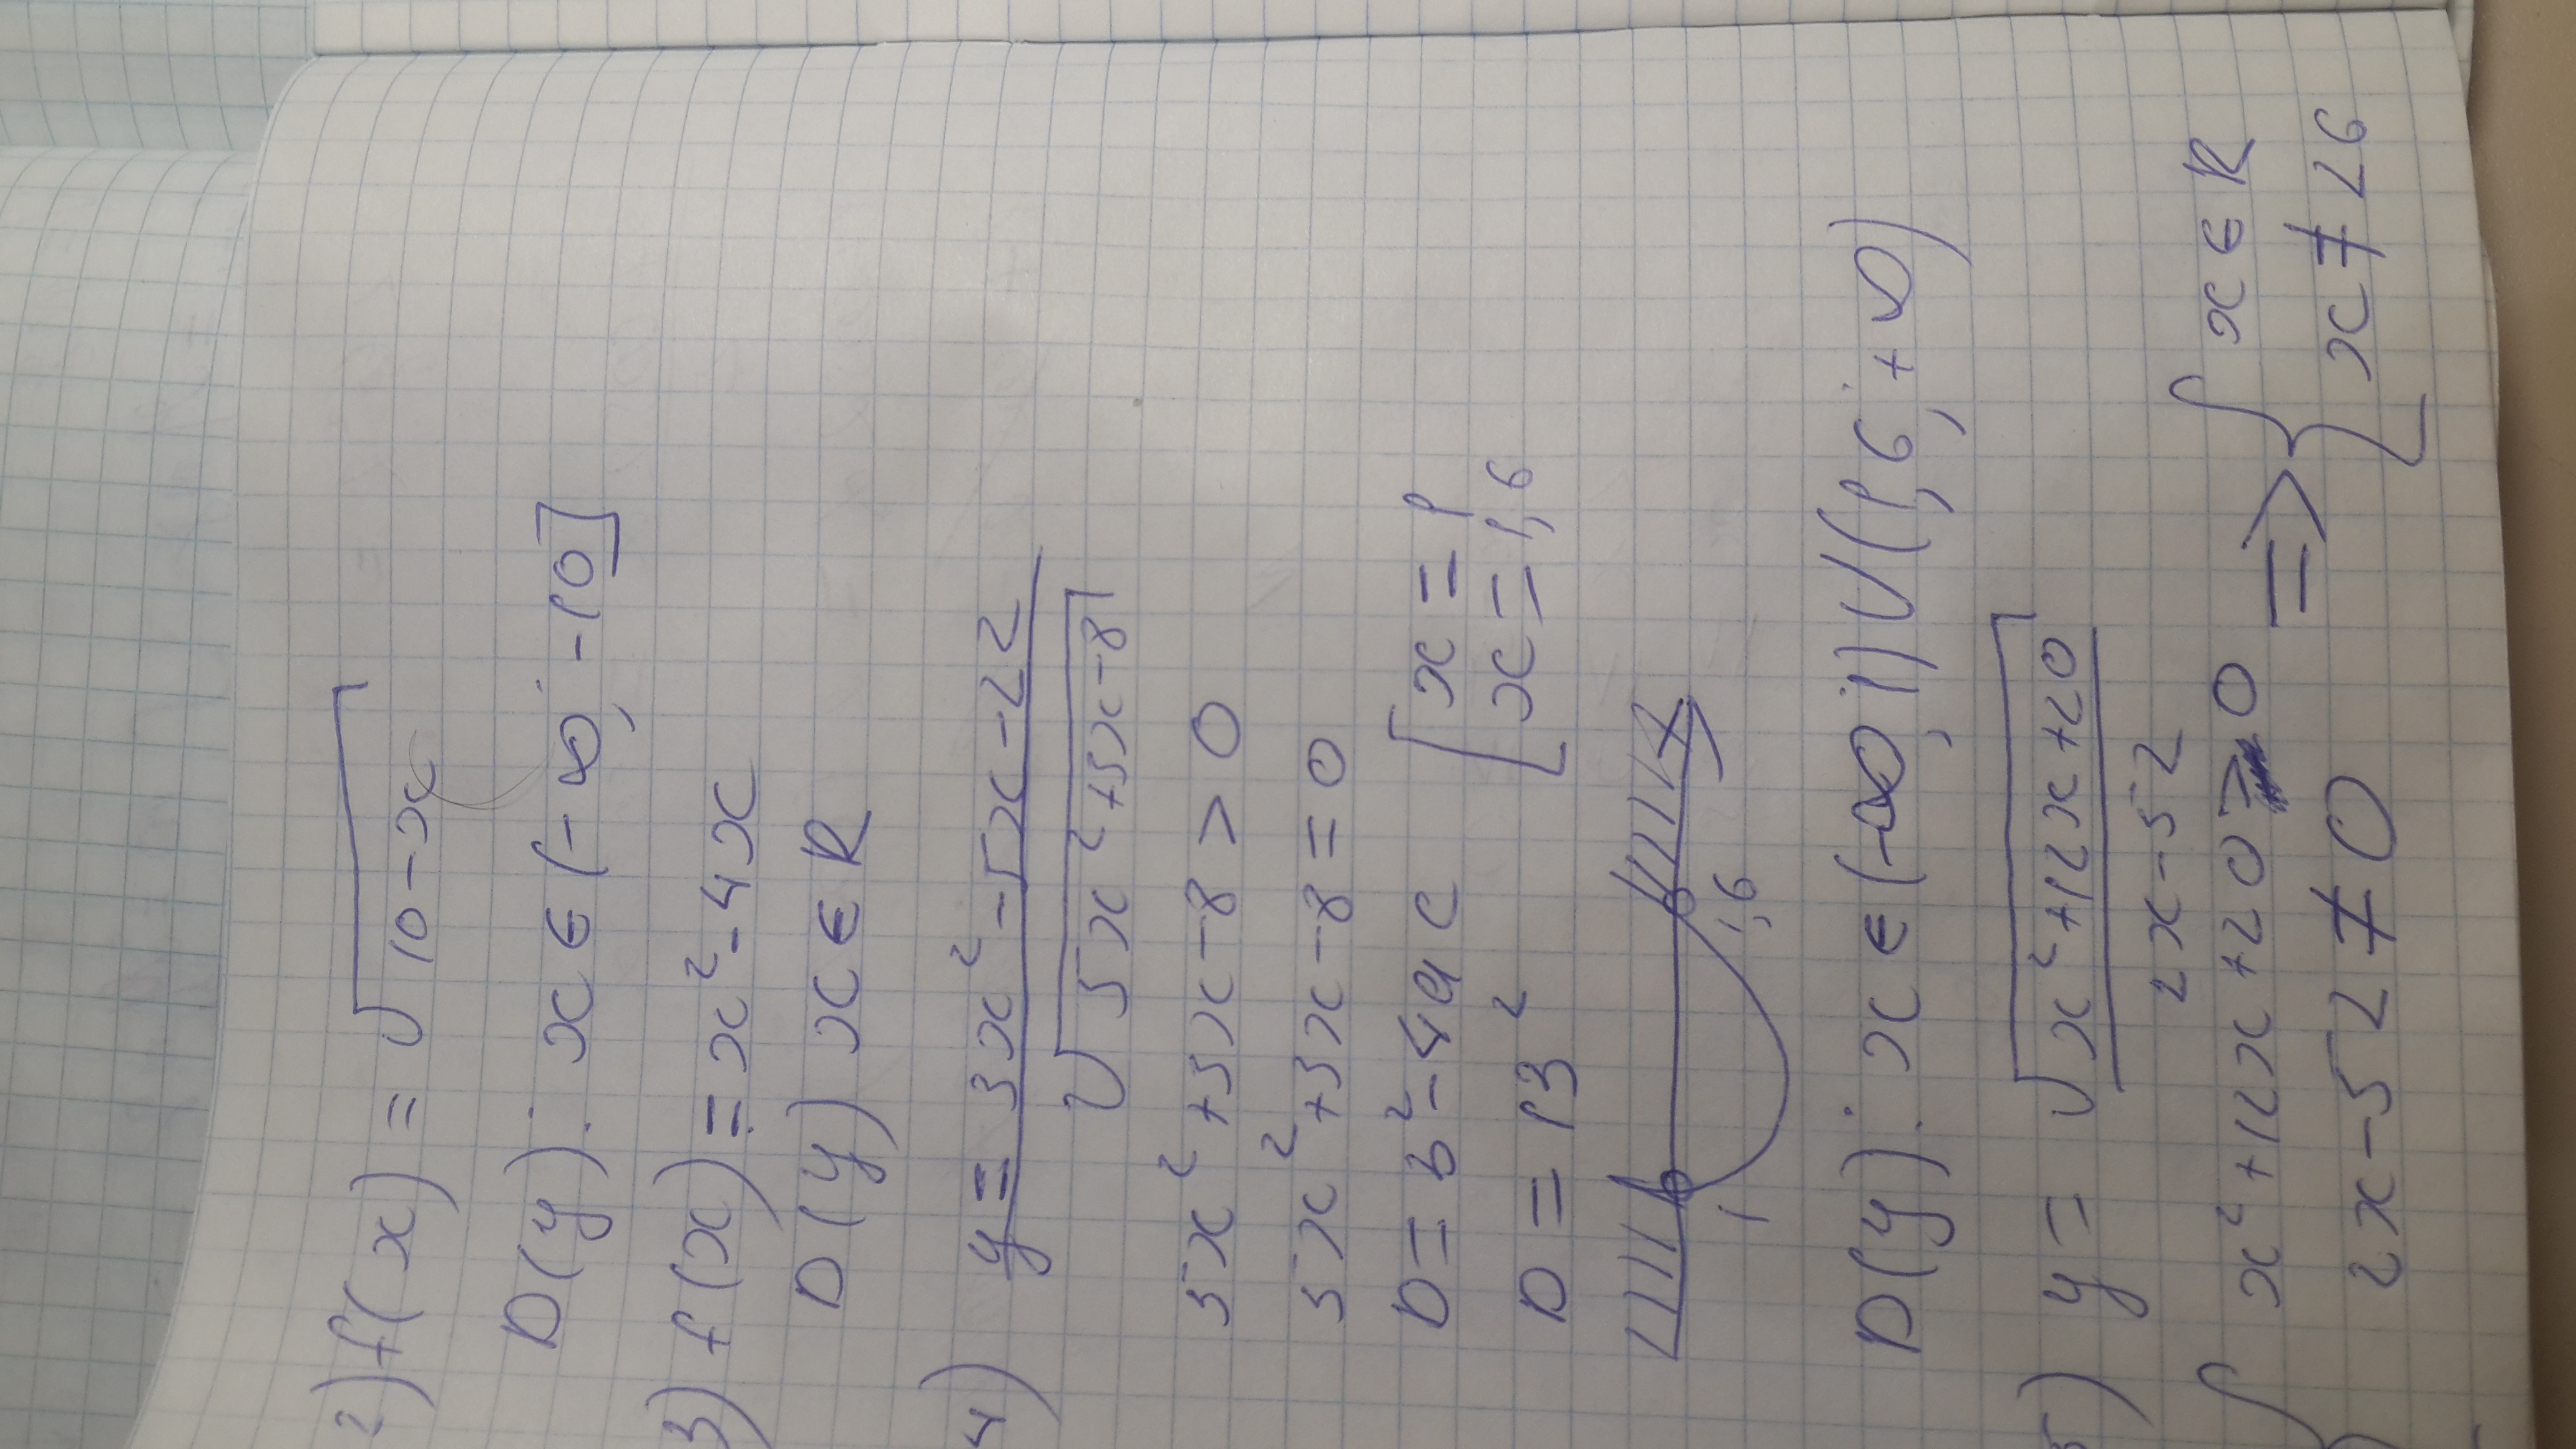 2) f(x) = √(10-x)
D(y): x ∈ (-∞; -10]
3) f(x) = x²-4x
D(y) x ∈ R
4) y = (3x²-5x-22)/√(5x²+5x-8)
5x²+5x-8>0
5x²+3x-8=0
D=b²-4ac [x=1
D=13² [x=1,6
1 1,6
D(y): x ∈ (-∞; 1) U (1,6; +∞)
5) y = √(x²+12x+20)/(2x-52)
{x²+12x+20≥0 => {x ∈ R
2x-52≠0 x≠26